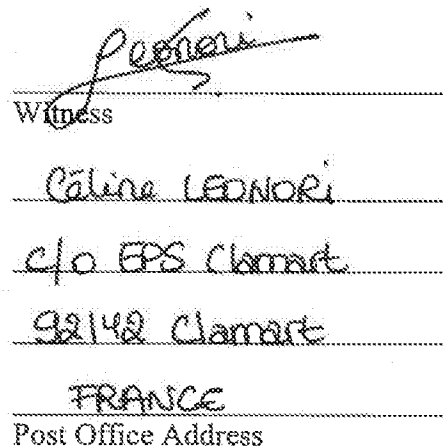 Leonori
Witness
Céline LEONORI
c/o EPS Clamart
92142 Clamart
FRANCE
Post Office Address